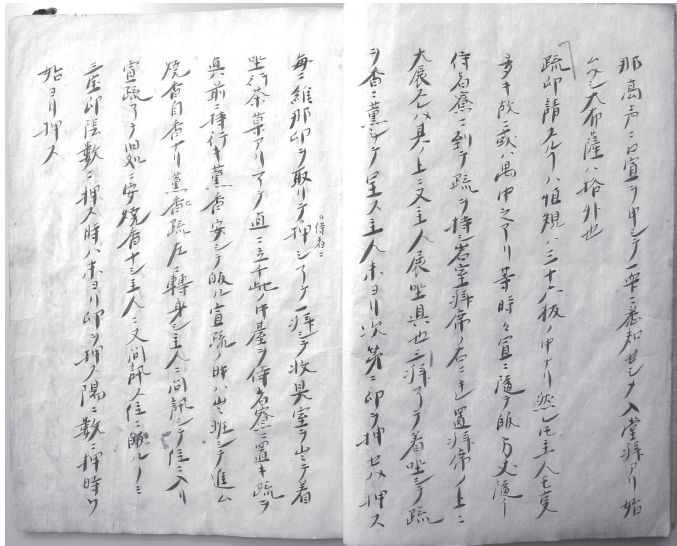 那高声ニ口宣ヲ申シテ一衆ニ悉知セシメ入堂拜アリ始
ムヘシ大布薩ハ格外也
疏印請スルヿハ恒規ハ三十六板ノ中ナリ然レモ主人モ支
多キ故ニ或ハ禺中之アリ等時々宜ニ隨テ皈方丈隨ノ
侍者寮ニ到テ疏ヲ持シ岩室拜席ノ右ニ置拜席ノ上ニ
大展スレハ具ノ上ニ又主人展坐具也三拜アテ着坐シテ疏
ヲ香ニ薫シテ呈ス主人末ヨリ次第ニ印ヲ押セハ押ス
毎ニ維那印ヲ取リテ押シアテ一拜シテ收具室ヲ出テ着
侍者ニ
坐行茶菓アリアテ直ニ立千此ノ中臺ヲ侍者寮ニ置キ疏ヲ
真前ニ持行キ薫香安シテ皈ル宣疏ノ時ハ出班シテ進ム
燒香自香ナリ薫香疏左ニ轉身シ主人ニ問訊シテ位ニ入リ
宣疏アテ旧処ニ安燒香ナシ主人ニ又問訊ス位ニ皈ルノミ
三處印陰数ニ押ス時ハ末ヨリ印ヲ押ス陽ニ数ニ押時ハ
始ヨリ押ス